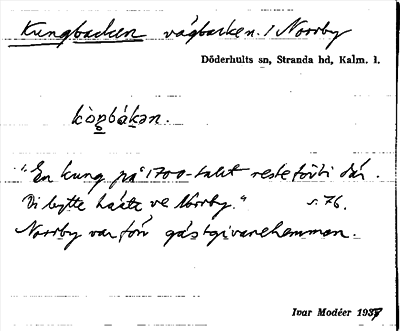 Kungbacken vägbacken. / Norrby
Döderhults sn, Stranda hd, Kalm. l.
kòŋbákən.
"En kung på 1700-talet reste förbi där.
Di bytte häste ve Norrby." s. 76.
Norrby var förr gästgivarehemman.
Ivar Modéer 1937